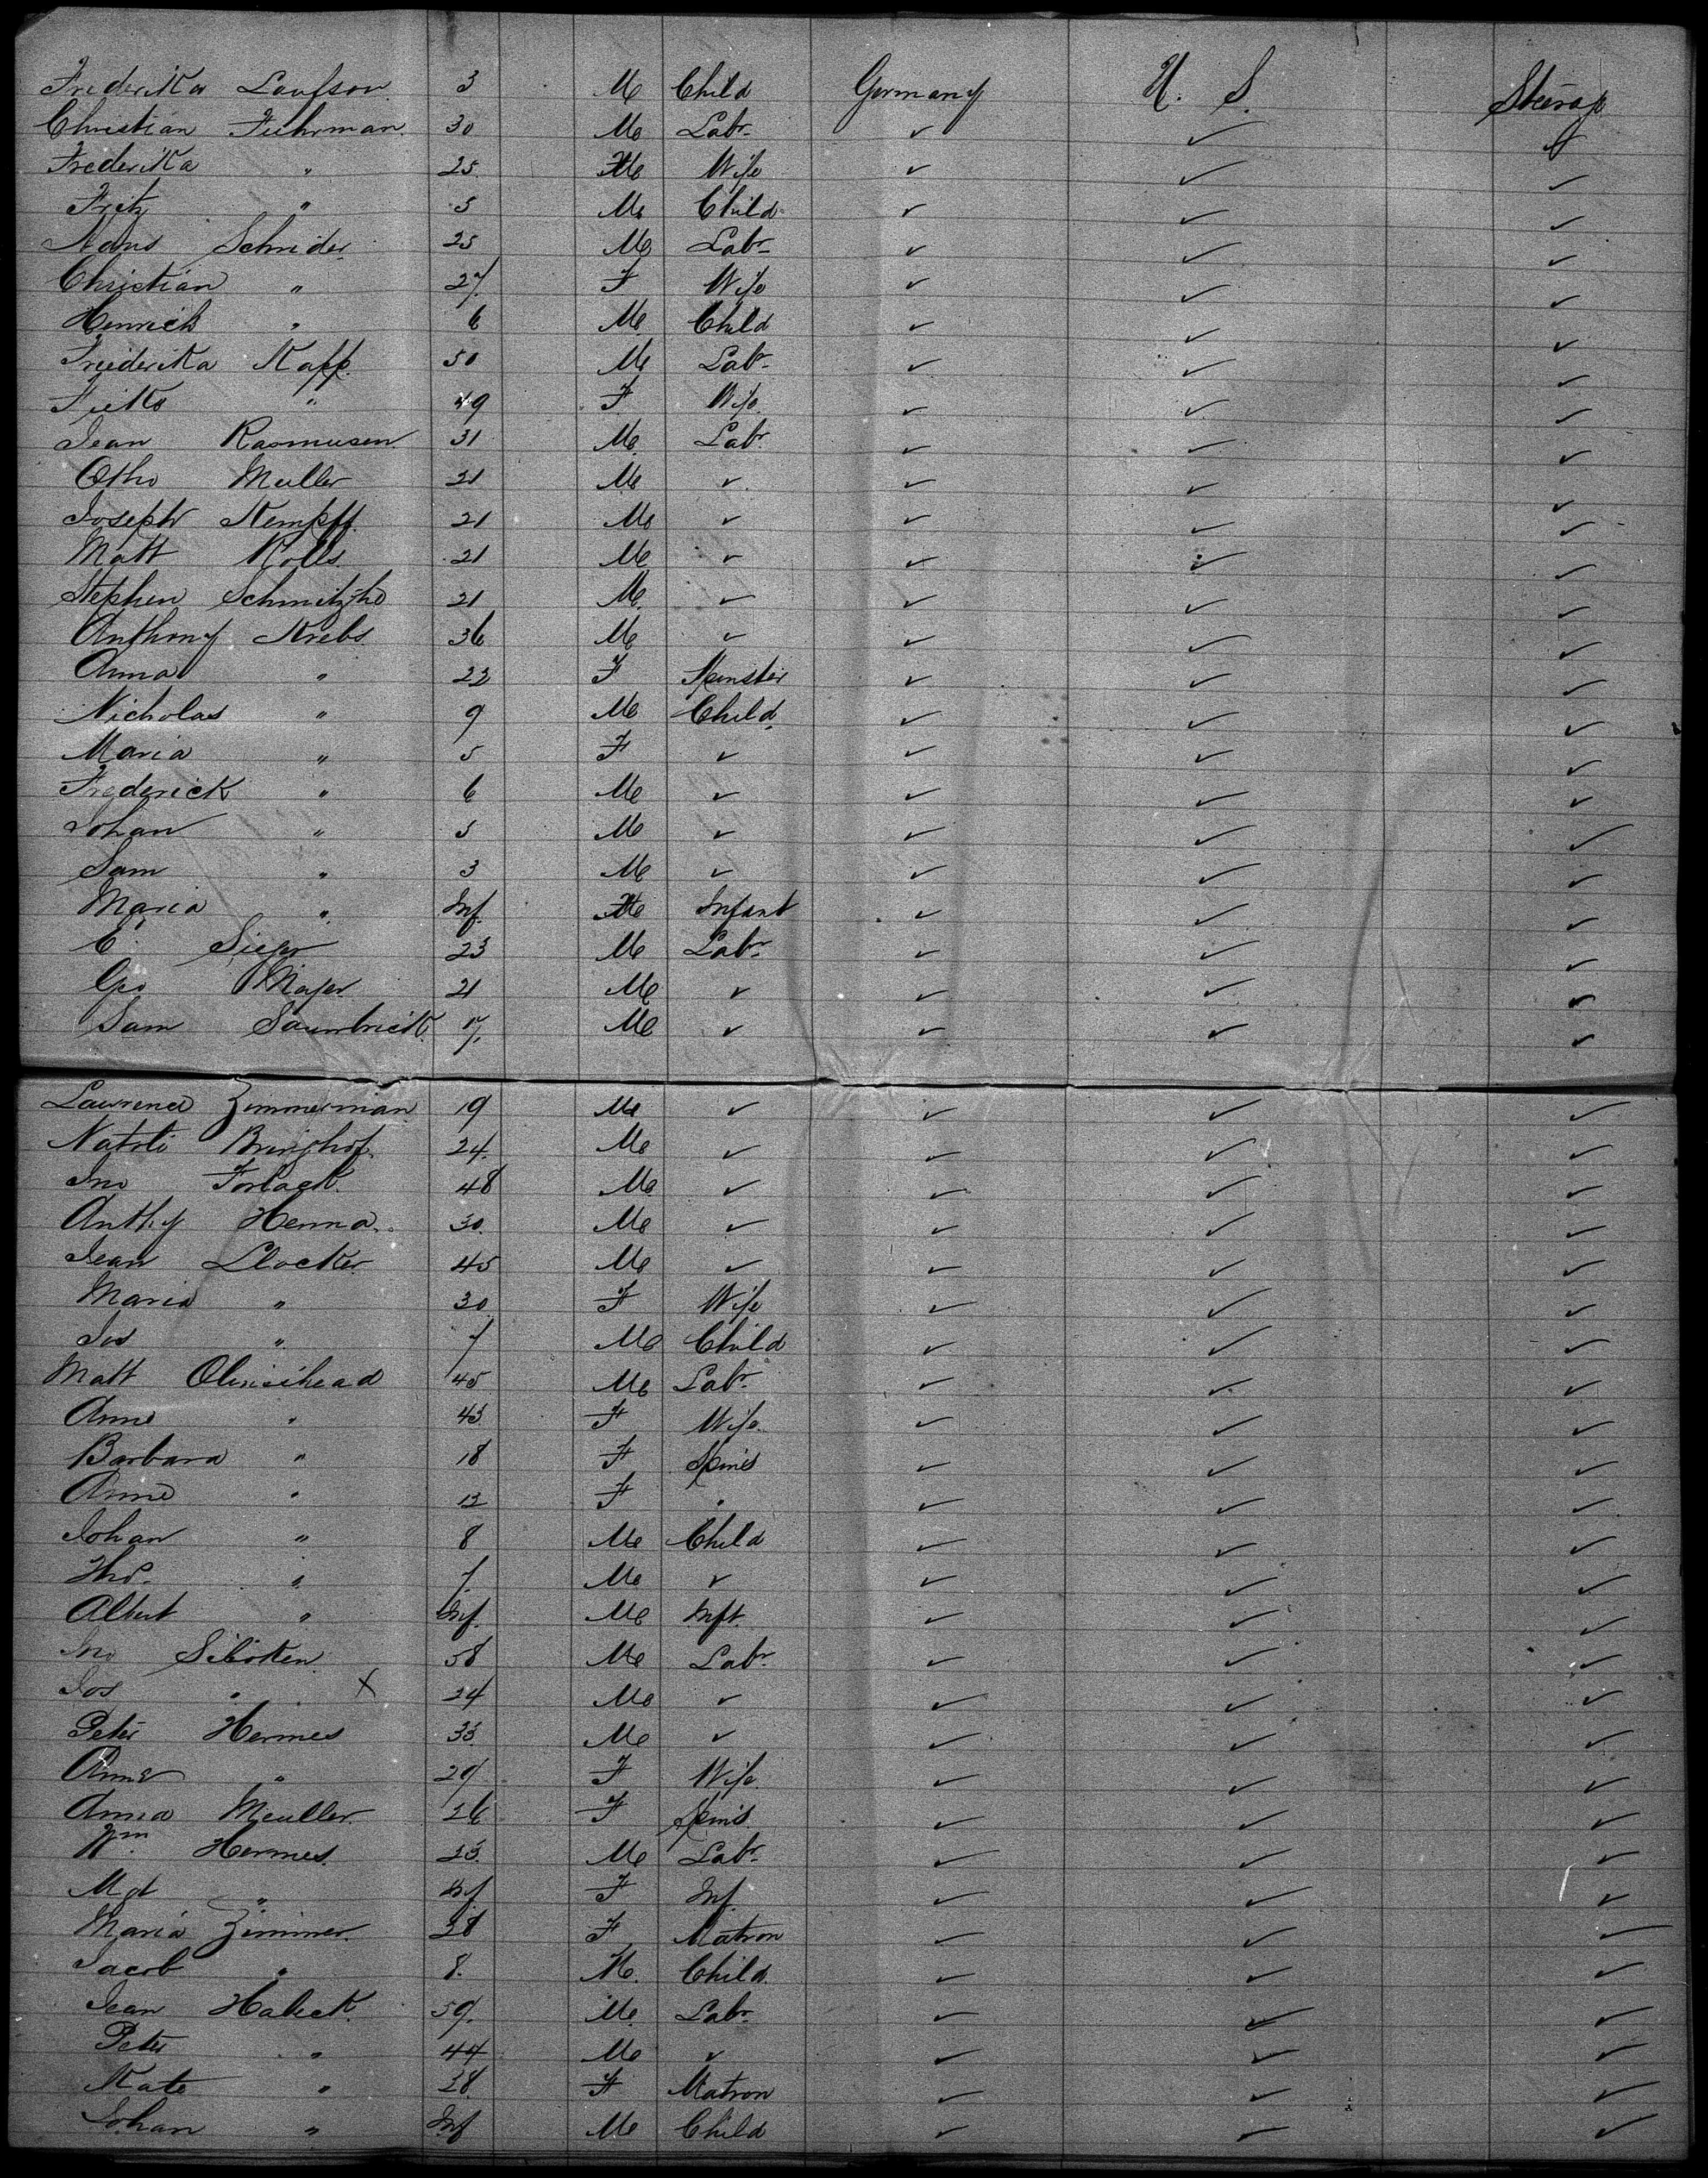 Frederika Laufson 3 M Child Germany U. S. Steerage
Christian Fuhrman 30 M Labr ✓ ✓ ✓
Frederika " 25 M Wife ✓ ✓ ✓
Fritz " 5 M Child ✓ ✓ ✓
Hans Schnider 25 M Labr ✓ ✓ ✓
Christian " 27 F Wife ✓ ✓ ✓
Henrich " 6 M Child ✓ ✓ ✓
Friederika Kapp 50 M Labr ✓ ✓ ✓
" 49 F Wife ✓ ✓ ✓
Jean Rasmusen 31 M Labr ✓ ✓ ✓
Otho Muller 21 M ✓ ✓ ✓ ✓
Joseph Kempff 21 M ✓ ✓ ✓ ✓
Matt Kolls 21 M ✓ ✓ ✓ ✓
Stephen 21 M ✓ ✓ ✓ ✓
Anthony Krebs 36 M ✓ ✓ ✓ ✓
Anna " 22 F Spinster ✓ ✓ ✓
Nicholas " 9 M Child ✓ ✓ ✓
Maria " 5 F ✓ ✓ ✓ ✓
Frederick " 6 M ✓ ✓ ✓ ✓
Johan " 5 M ✓ ✓ ✓ ✓
Sam " 3 M ✓ ✓ ✓ ✓
Maria " Inf. Infant ✓ ✓ ✓
C. Sieger 23 M Labr ✓ ✓ ✓
Geo Mayer 21 M ✓ ✓ ✓ ✓
Sam Saumbrick 17 M ✓ ✓ ✓ ✓
Lawrence Zimmerman 19 M ✓ ✓ ✓ ✓
Natoli Bringhof 24 M ✓ ✓ ✓ ✓
Jno Forlack 48 M ✓ ✓ ✓ ✓
Anthy Henna 30 M ✓ ✓ ✓ ✓
Jean Llocker 45 M ✓ ✓ ✓ ✓
Maria " 30 F Wife ✓ ✓ ✓
Jos " 7 M Child ✓ ✓ ✓
Matt Olinsihead 45 M Labr ✓ ✓ ✓
Anne " 43 F Wife ✓ ✓ ✓
Barbara " 18 F Spins ✓ ✓ ✓
Anne " 12 F " ✓ ✓ ✓
Johan " 8 M Child ✓ ✓ ✓
" 7 M ✓ ✓ ✓ ✓
Albert " Inf. M Inft. ✓ ✓ ✓
Jno Siboken 58 M Labr ✓ ✓ ✓
Jos " X 24 M ✓ ✓ ✓ ✓
Peter Hermes 33 M ✓ ✓ ✓ ✓
Anne " 29 F Wife ✓ ✓ ✓
Anna Meuller 26 F Spins ✓ ✓ ✓
Wm Hermes 23 M Labr ✓ ✓ ✓
Mgt " Inf F Inf ✓ ✓ ✓
Maria Zimmer 38 F Matron ✓ ✓ ✓
Jacob " 8. M. Child ✓ ✓ ✓
Jean Habeck 59 M Labr ✓ ✓ ✓
Peter " 44 M ✓ ✓ ✓ ✓
Kate " 28 F Matron ✓ ✓ ✓
Johan " Inf M Child ✓ ✓ ✓